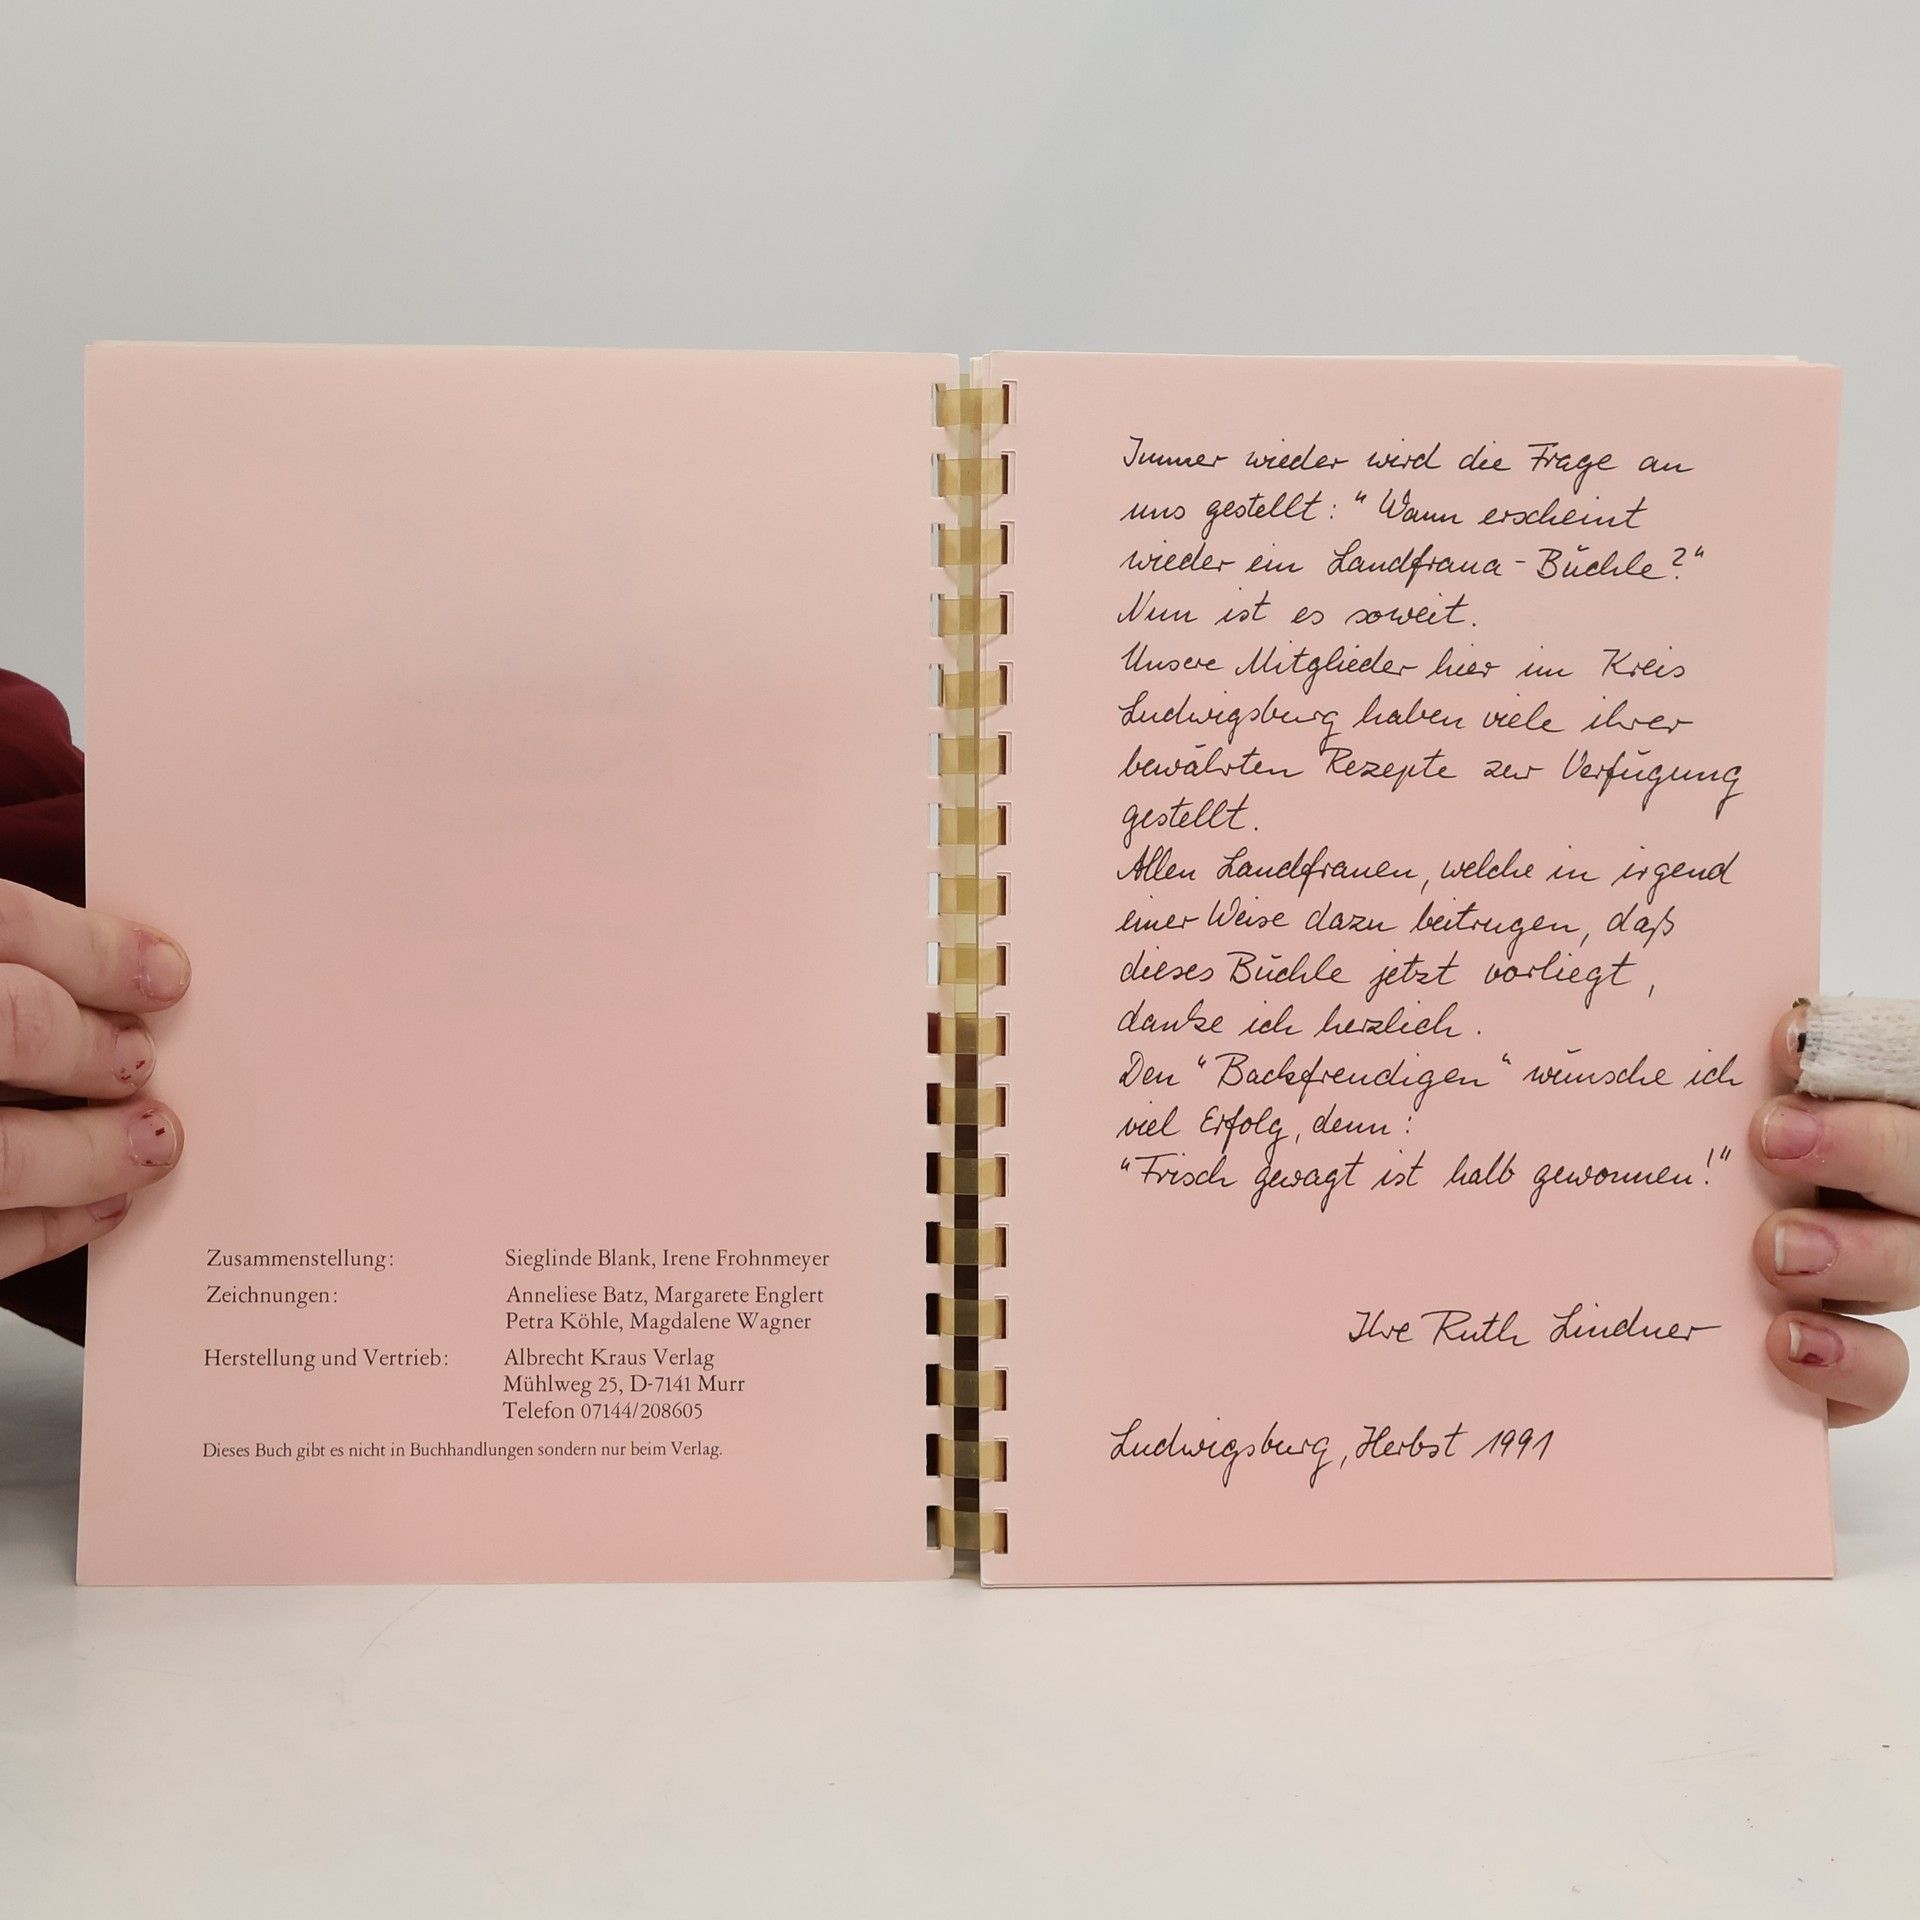 Zusammenstellung: Sieglinde Blank, Irene Frohnmeyer
Zeichnungen: Anneliese Batz, Margarete Englert
Petra Köhle, Magdalene Wagner
Herstellung und Vertrieb: Albrecht Kraus Verlag
Mühlweg 25, D-7141 Murr
Telefon 07144/208605
Dieses Buch gibt es nicht in Buchhandlungen sondern nur beim Verlag.
Immer wieder wird die Frage an
uns gestellt: "Wann erscheint
wieder ein Landfraua-Büchle?"
Nun ist es soweit.
Unsere Mitglieder hier im Kreis
Ludwigsburg haben viele ihrer
bewährten Rezepte zur Verfügung
gestellt.
Allen Landfrauen, welche in irgend
einer Weise dazu beitrugen, daß
dieses Büchle jetzt vorliegt,
danke ich herzlich.
Den "Backfreudigen" wünsche ich
viel Erfolg, denn:
"Frisch gewagt ist halb gewonnen!"
Ihre Ruth Lindner
Ludwigsburg, Herbst 1991